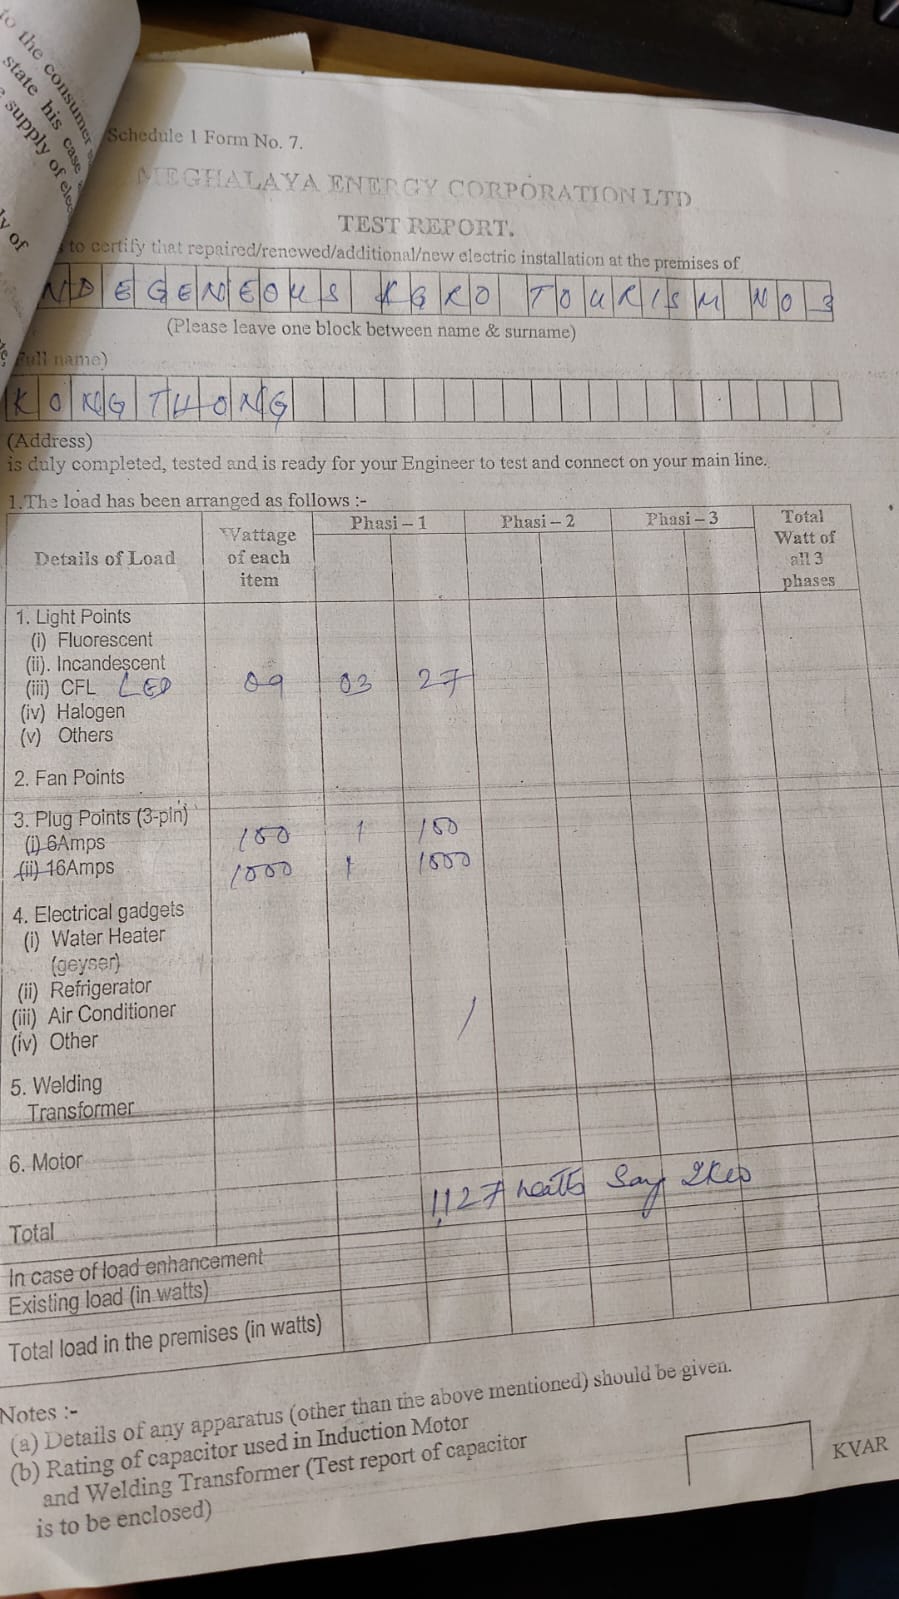 to the consumer
state his case
supply of elec
ly of
Schedule 1 Form No. 7.
MEGHALAYA ENERGY CORPORATION LTD
TEST REPORT.
to certify that repaired/renewed/additional/new electric installation at the premises of
NDEGENEOUS KGRO TOURISM NO 3
(Please leave one block between name & surname)
Full name)
KONGTHONG
(Address)
is duly completed, tested and is ready for your Engineer to test and connect on your main line.
1.The load has been arranged as follows :-
Details of Load Wattage of each item Phasi – 1 Phasi – 2 Phasi – 3 Total Watt of all 3 phases
1. Light Points
(i) Fluorescent
(ii). Incandescent
(iii) CFL LED 09 03 27
(iv) Halogen
(v) Others
2. Fan Points
3. Plug Points (3-pin)
(i) 6Amps 100 1 100
(ii) 16Amps 1000 1 1000
4. Electrical gadgets
(i) Water Heater
(geyser)
(ii) Refrigerator
(iii) Air Conditioner
(iv) Other
5. Welding
Transformer
6. Motor
Total 1127 watts Say 2KW
In case of load enhancement
Existing load (in watts)
Total load in the premises (in watts)
Notes :-
(a) Details of any apparatus (other than the above mentioned) should be given.
(b) Rating of capacitor used in Induction Motor
and Welding Transformer (Test report of capacitor
is to be enclosed) KVAR